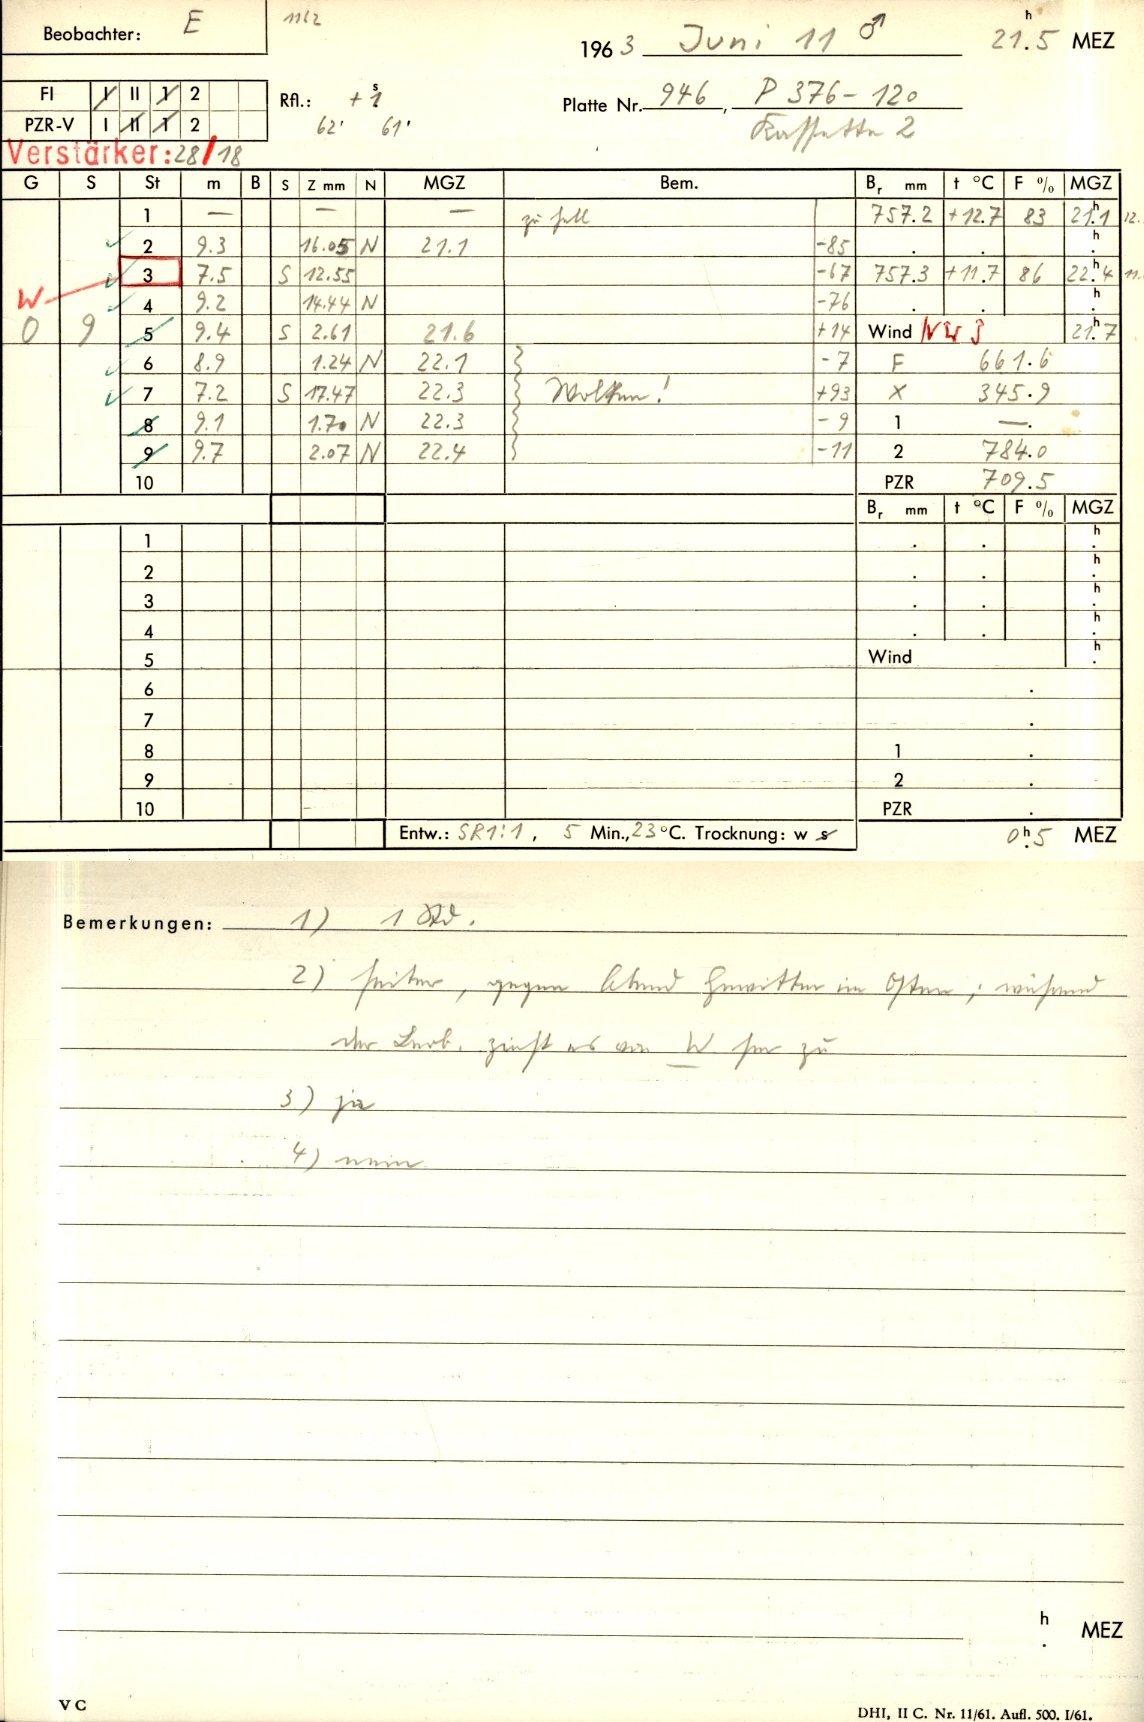 Beobachter: E 1162
1963 Juni 11 ♂ 21.5 h MEZ
FI I II 1 2
Rfl.: + 1 s
Platte Nr. 946, P 376-120
PZR-V I II 1 2
62' 61'
Kassette 2
Verstärker: 28/18
G S St m B S Z mm N MGZ Bem. Br mm t °C F % MGZ
1 — — — zu hell 757.2 +12.7 83 21.1 h 12.
2 9.3 16.05 N 21.1 -85 . . h
3 7.5 S 12.55 -67 757.3 +11.7 86 22.4 h 11.
W 4 9.2 14.44 N -76 . . h
0 9 5 9.4 S 2.61 21.6 +14 Wind NW 3 21.7 h
6 8.9 1.24 N 22.1 -7 F 661.6
7 7.2 S 17.47 22.3 Wolken! +93 X 345.9
8 9.1 1.70 N 22.3 -9 1 —.
9 9.7 2.07 N 22.4 -11 2 784.0
10 PZR 709.5
Br mm t °C F % MGZ
1 . . h
2 . . h
3 . . h
4 . . h
5 Wind h
6 .
7 .
8 1 .
9 2 .
10 PZR .
Entw.: SR1:1, 5 Min., 23°C. Trocknung: w s 0.5 h MEZ
Bemerkungen: 1) 1 Std.
2) heiter, gegen Abend Gewitter im Osten; während
der Beob. zieht es von W her zu
3) ja
4) nein
h
. MEZ
V C
DHI, II C. Nr. 11/61. Aufl. 500. I/61.